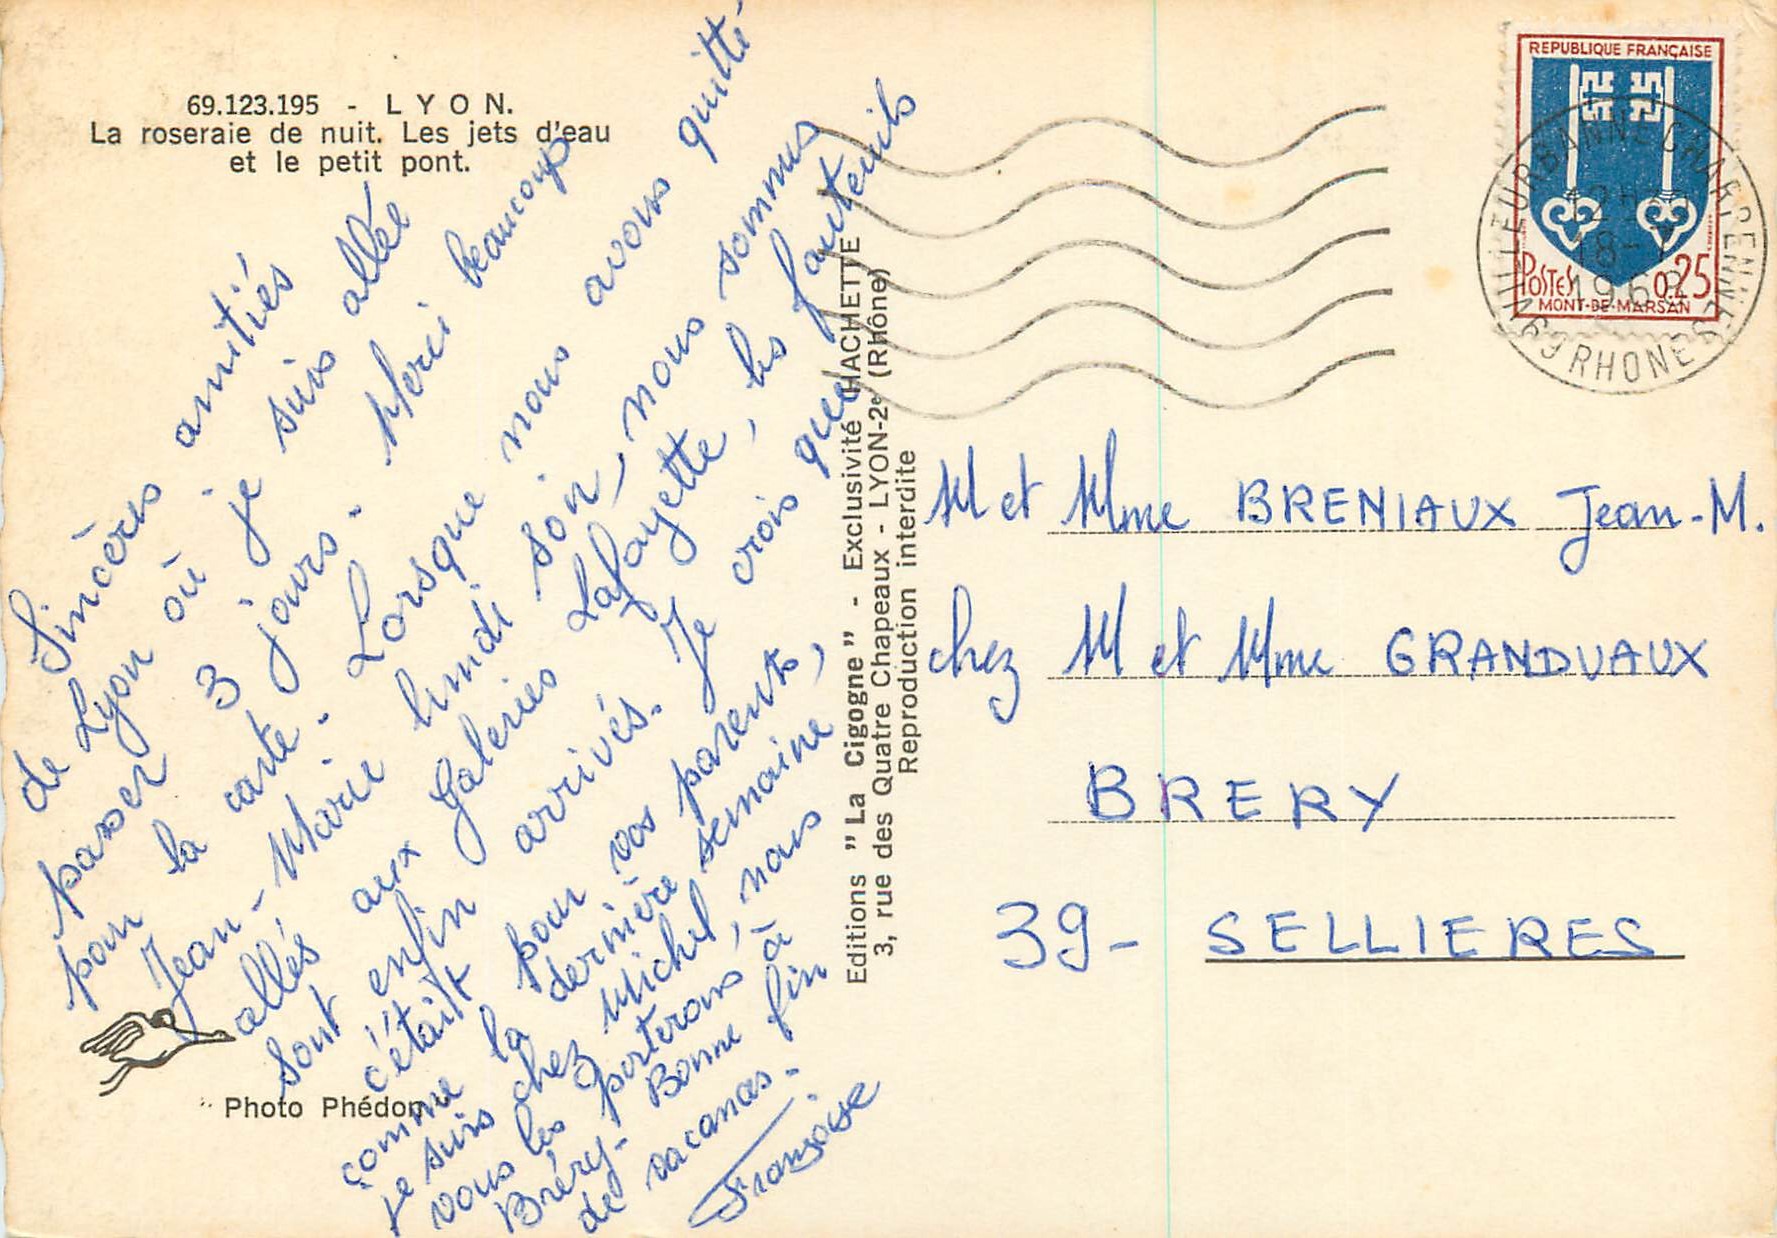 69.123.195 - LYON.
La roseraie de nuit. Les jets d'eau
et le petit pont.
Sincères amitiés
de Lyon où je suis allée
passer 3 jours. Merci beaucoup
pour la carte. Lorsque nous avons quitté
Jean-Marie lundi soir, nous sommes
allés aux Galeries Lafayette, les fauteuils
sont enfin arrivés. Je crois que
c'était pour vos parents,
comme la dernière semaine
je suis chez Michel, nous
vous les porterons à
Bréry. Bonne fin
de vacances.
Françoise
Photo Phédon
Editions "La Cigogne" - Exclusivité HACHETTE
3, rue des Quatre Chapeaux - LYON-2e (Rhône)
Reproduction interdite
REPUBLIQUE FRANÇAISE
POSTES 0.25
MONT-DE-MARSAN
VILLEURBANNE CHARPENNES
12 H
18-7
1968
69 RHONE
M et Mme BRENIAUX Jean-M.
chez M et Mme GRANDVAUX
BRERY
39- SELLIERES